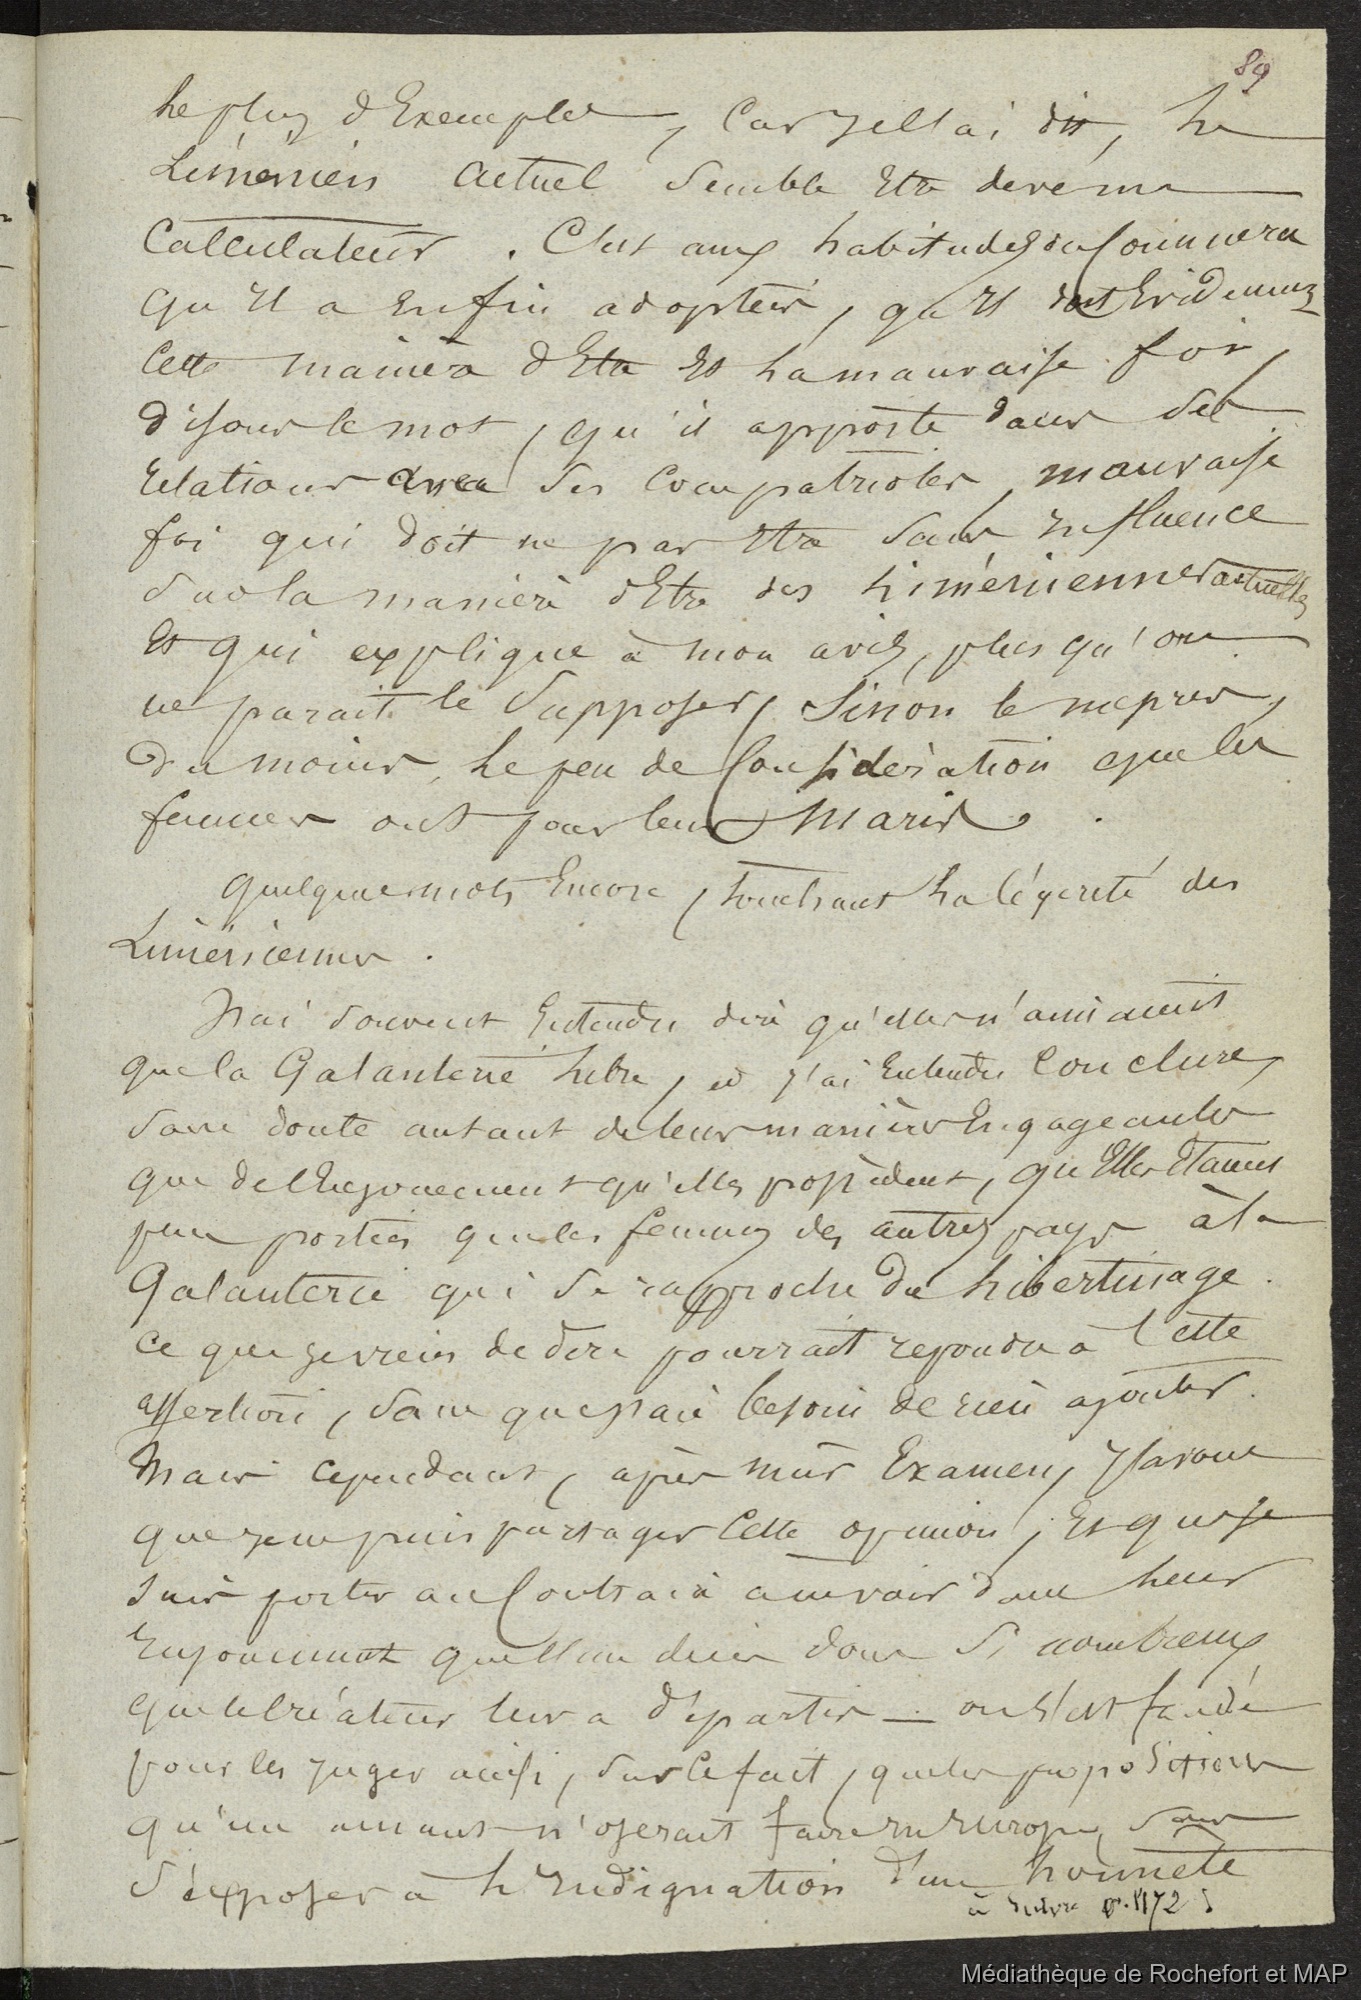 89
le plus d'Exemples, Car je l'ai dit, le
Liménien actuel semble Etre devenu
Calculateur. C'est aux habitudes du Commerce
qu'il a Enfin adopter, qu'il doit Evidemment
Cette manière d'Etre Et la mauvaise foi,
disons le mot, qu'il apporte dans ses
relations avec ses Compatriotes, mauvaise
foi qui doit ne pas Etre sans influence
sur la manière d'Etre des liméniennes actuelles
Et qui explique à mon avis, plus qu'on
ne parait le supposer, sinon le mepris,
du moins, le peu de Considération que les
femmes ont pour leurs maris.
quelques mots Encore, touchant la légereté des
Liméniennes.
J'ai souvent Entendu dire qu'elles n'aimaient
que la Galanterie libre, et j'ai Entendu Conclure,
sans doute autant de leurs manières Engageantes
que de l'Enjouement qu'elles possèdent, qu'Elles Etaient
plus portées que les femmes des autres pays à la
Galanterie qui se rapproche du libertinage.
Ce que je viens de dire pourrait repondre à Cette
assertion, sans que j'aie besoin de rien ajouter.
Mais cependant, après mûr Examen, j'avoue
que je ne puis partager Cette opinion, Et que je
suis porter au Contraire a ne voir dans leur
Enjouement que l'un des dons si nombreux
que le Créateur leur a départis — on s'est fondé
pour les juger ainsi, sur le fait, que les propositions
qu'un amant n'oserait faire en Europe, sans
s'exposer à l'indignation d'une honnête
à suivre p. 1172 5
Médiathèque de Rochefort et MAP